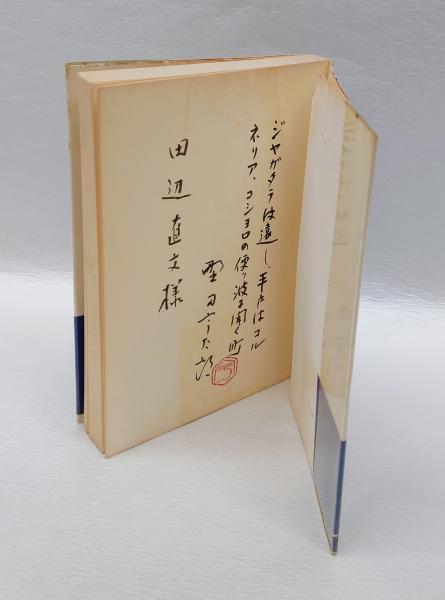 ジヤガタラは遠し、平戸はコル
ネリア、コシヨロの便り波に聞く町
野田宇太郎
田辺直文様